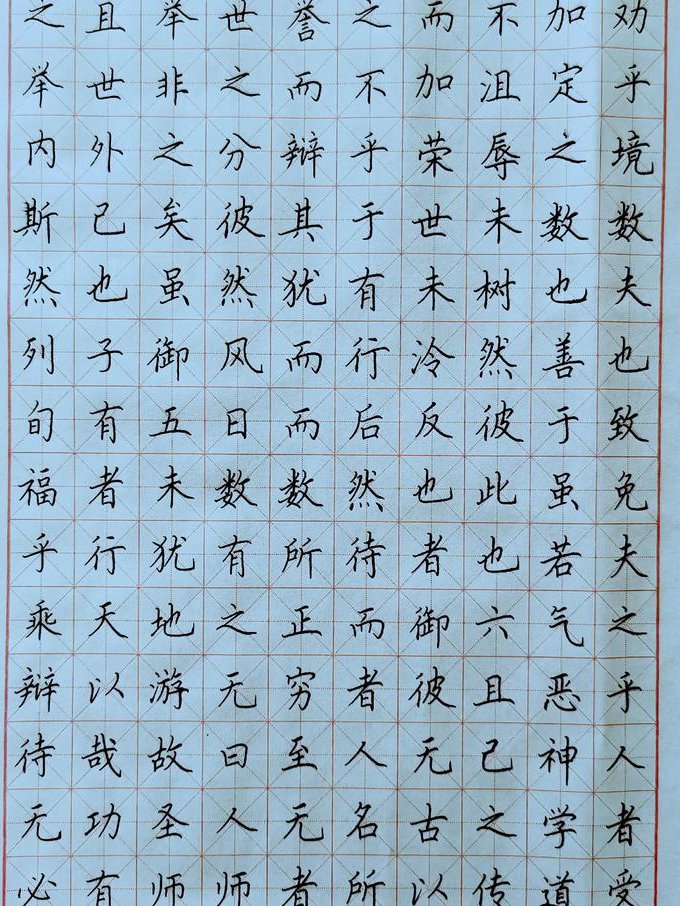 之且举世誉之而不加劝
举世非之而不加沮定乎
内外之分辩乎荣辱之境
斯已矣彼其于世未数数
然也虽然犹有未树也夫
列子御风而行泠然善也
旬有五日而后反彼于致
福者未数数然也此虽免
乎行犹有所待者也若夫
乘天地之正而御六气之
辩以游无穷者彼且恶乎
待哉故曰至人无己神人
无功圣人无名古之学者
必有师师者所以传道受